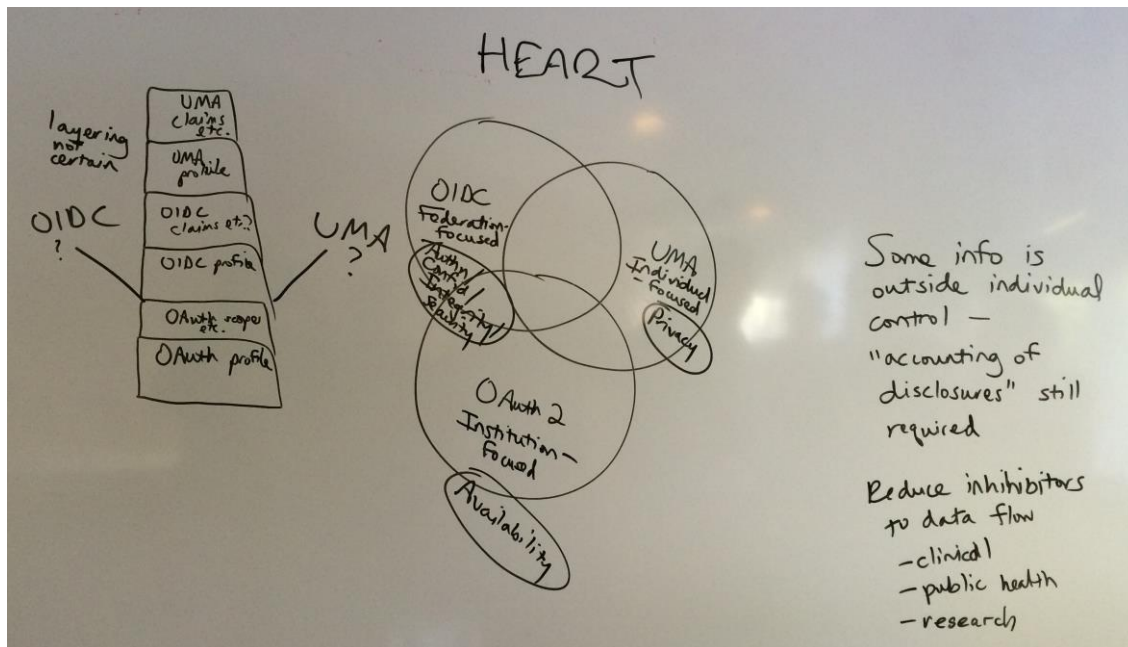 HEART
layering
not
certain
UMA
claims
etc.
UMA
profile
OIDC
claims etc?
OIDC profile
OAuth scopes
etc.
OAuth profile
OIDC
?
UMA
?
OIDC
Federation-
focused
Authn
Confid
Integrity/
UMA
Individual
-focused
Privacy
OAuth 2
Institution-
focused
Availability
Some info is
outside individual
control —
"accounting of
disclosures" still
required
Reduce inhibitors
to data flow
- clinical
- public health
- research